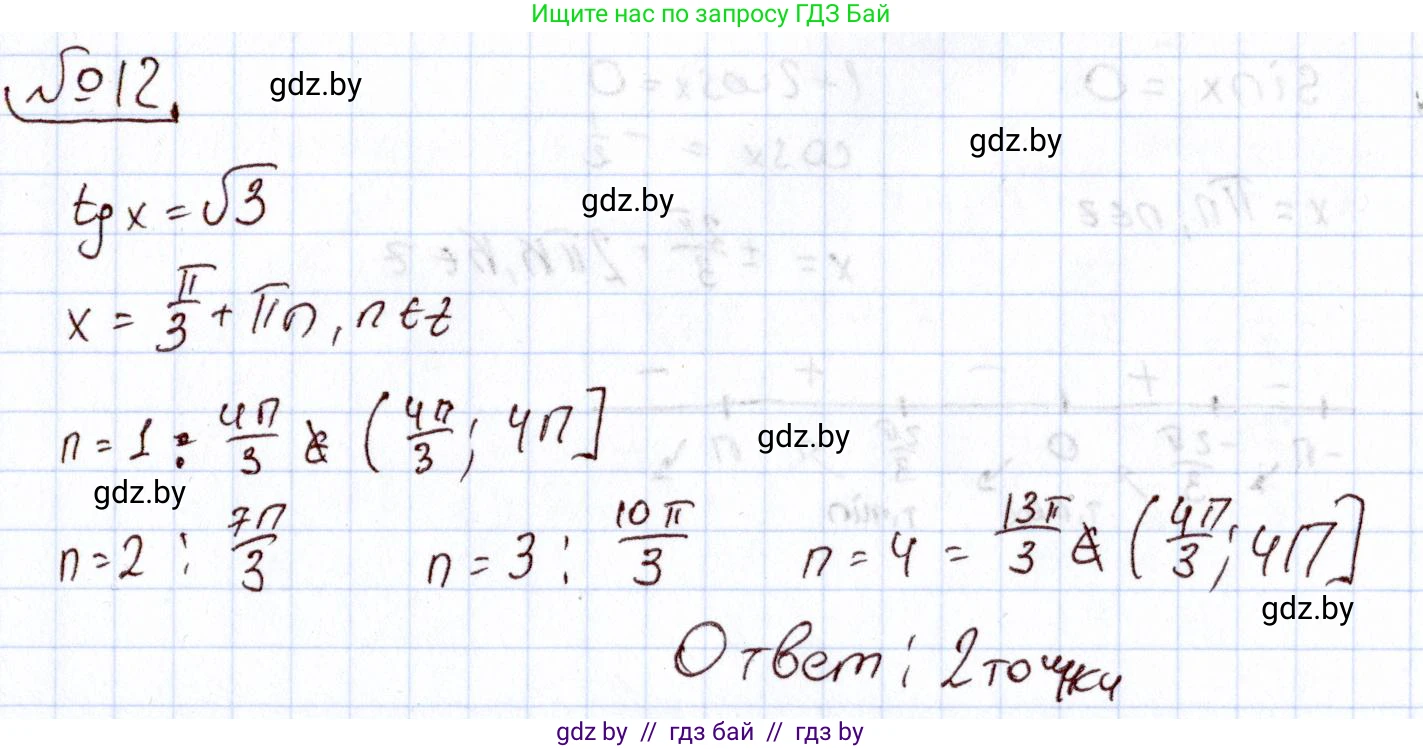 Ищите нас по запросу ГДЗ Бай
№12
gdz.by
gdz.by
tg x = √3
gdz.by
x = π/3 + πn, n ∈ z
n = 1 : 4π/3 ∉ (4π/3; 4π]
gdz.by
gdz.by
n = 2 : 7π/3 n = 3 : 10π/3 n = 4 = 13π/3 ∉ (4π/3; 4π]
gdz.by
Ответ: 2 точки
gdz.by // гдз бай // гдз by